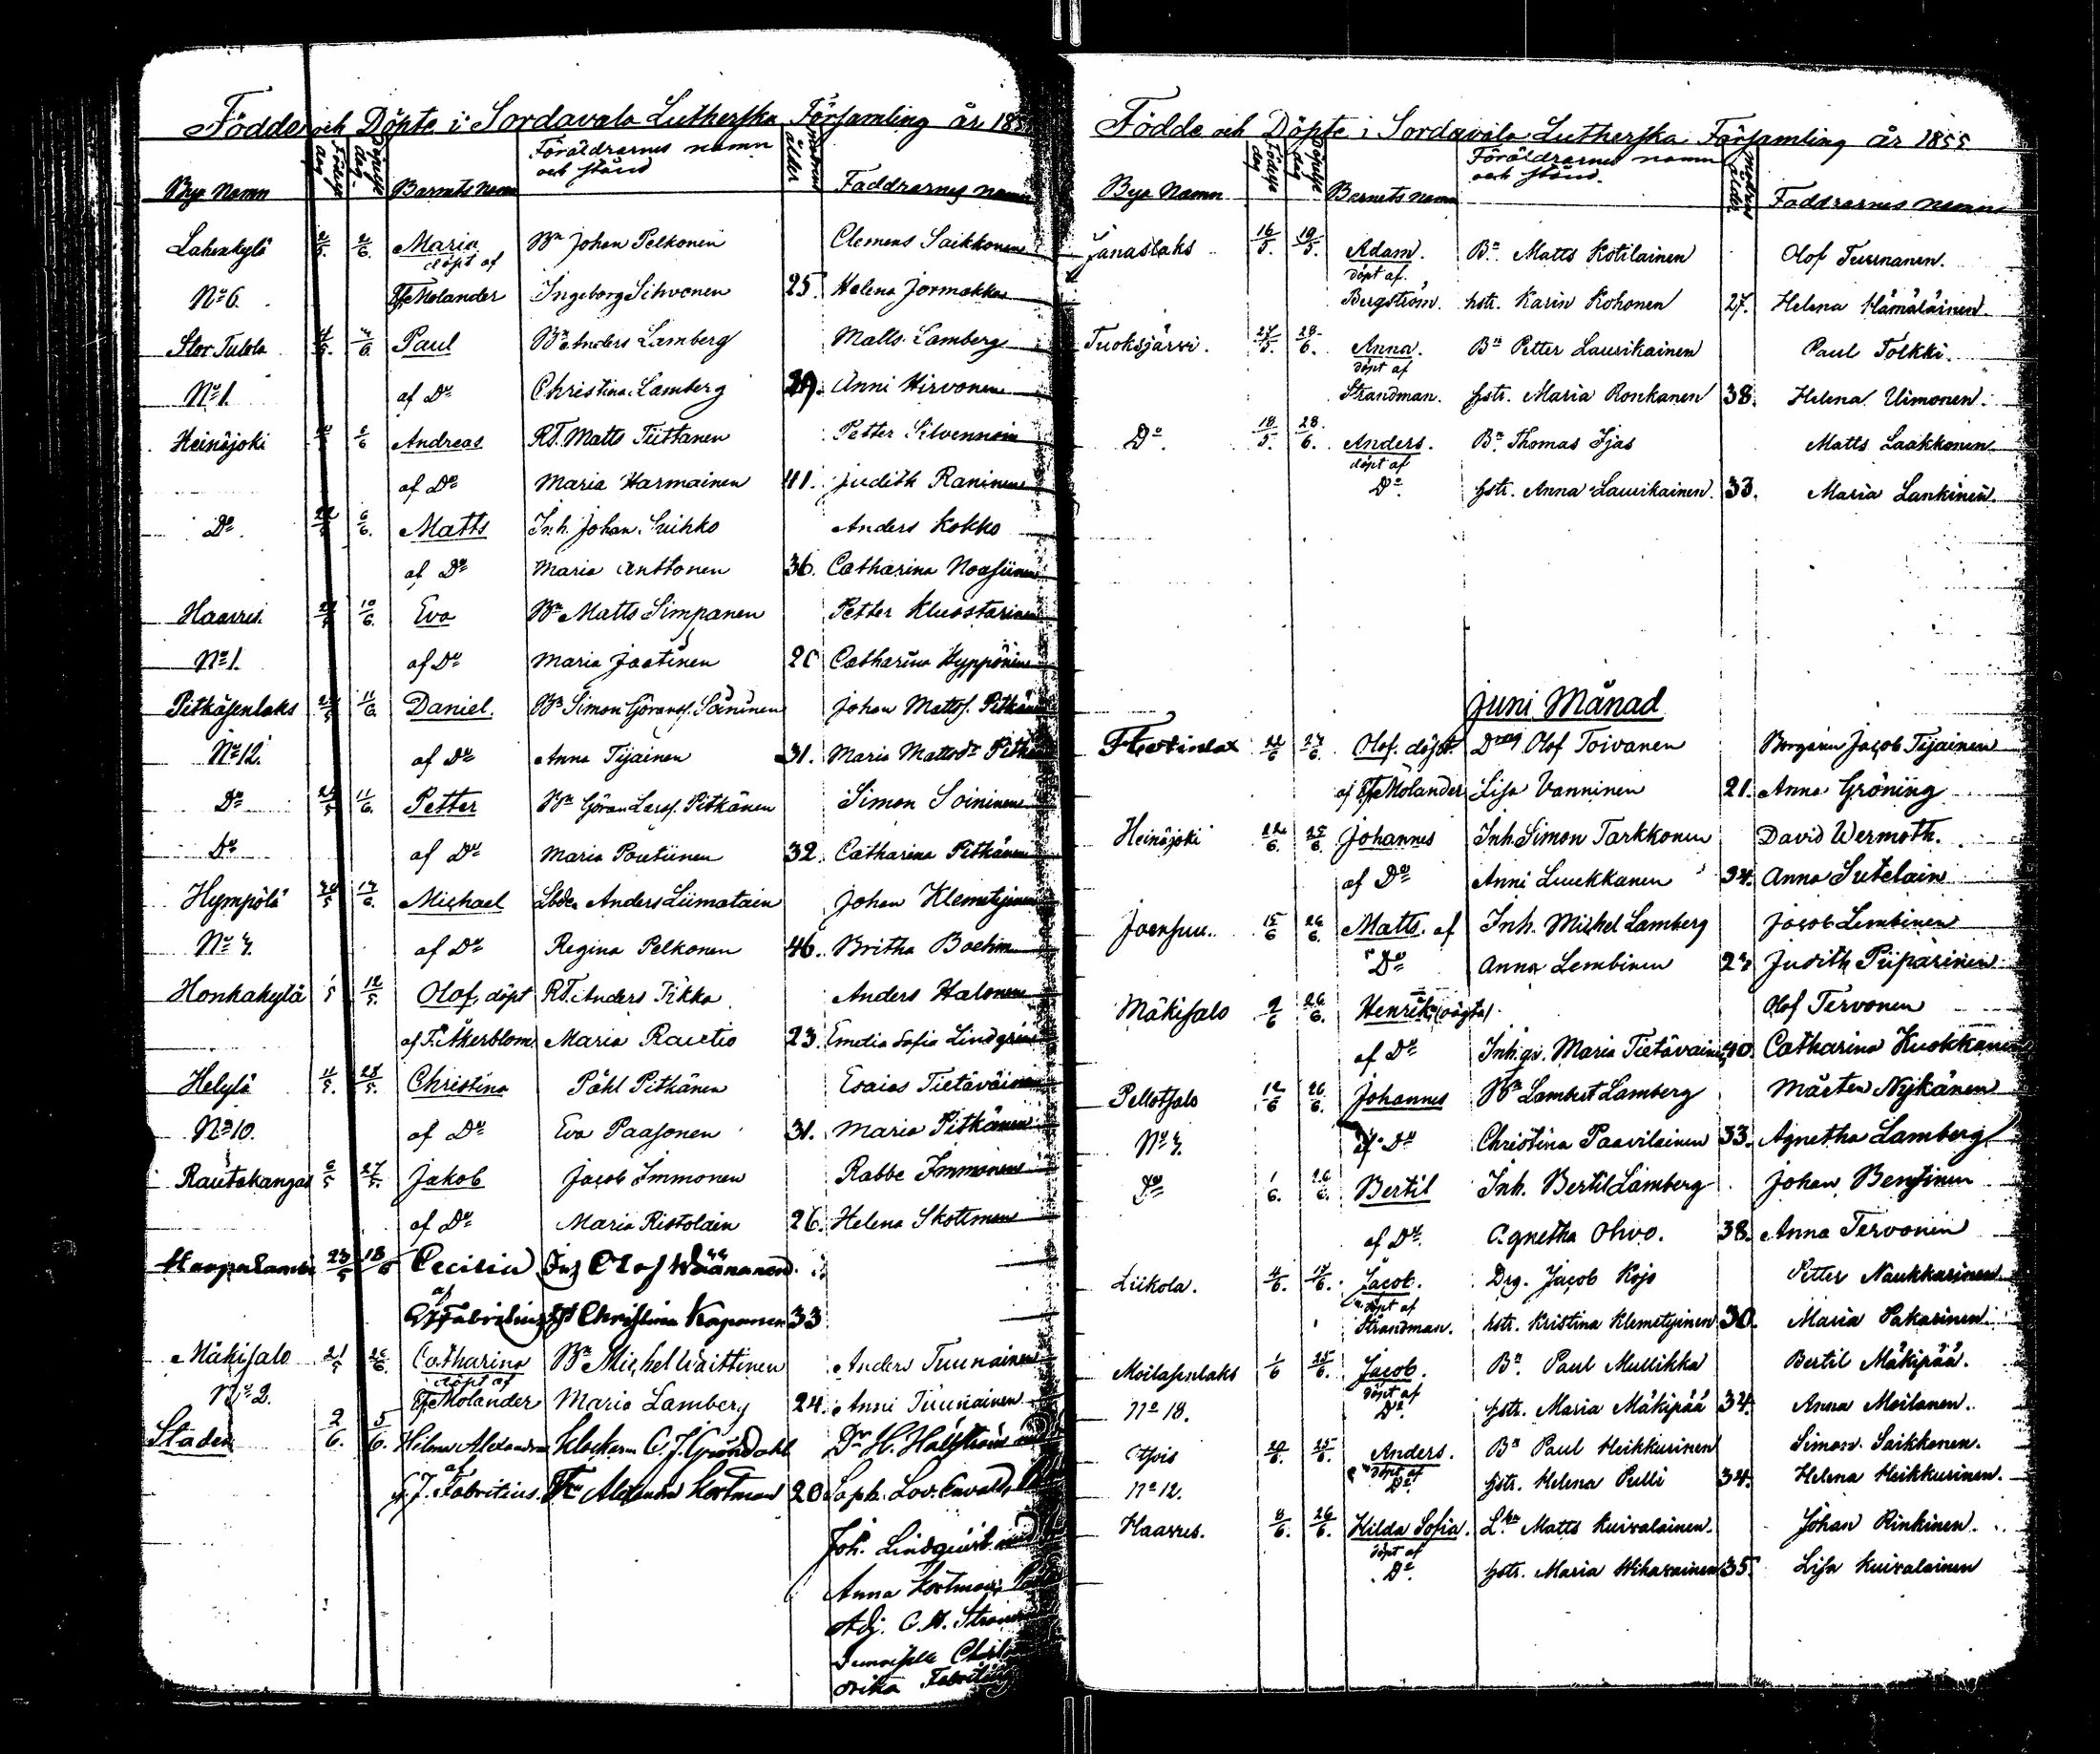 Födde och Döpte i Sordavala Lutherska Församling år 185
Bys Namn Födelse dag Döpelse dag Barnets Namn Föräldrarnes namn och stånd Modrens ålder Faddrarnes namn
Lahenkylä 2/6. Maria Bn Johan Pelkonen Clemens Saikkonen
döpt af
No 6. Molander Ingeborg Sihvonen 25. Helena Jormakka
Stor Tulola Paul Bn Anders Lamberg Matts Lamberg
No 1. af Do Christina Lamberg 29. Anni Hirvonen
Heinäjoki Andreas RT. Matts Tiittanen Petter Silvennoin
af Do Maria Harmainen 41. Judith Raninen
Do. 6/6. Matts Inh. Johan Suihko Anders Kokko
af Do Maria Anttonen 36. Catharina Noasiinen
Haavus 10/6. Eva Bn Matts Simpanen Petter Kluostarinen
No 1. af Do Maria Jaatinen 20 Catharina Hyppönen
Pitkäsenlaks 11/6. Daniel. Bn Simon Göranss. Soininen Johan Mattss. Pitkänen
No 12. af Do Anna Tijainen 31. Maria Mattsdr
Do 11/6. Petter Bn Göran Larss. Pitkänen Simon Soininen
Do af Do Maria Poutiinen 32. Catharina Pitkänen
Hympölä 17/6. Michael Anders Liimatain Johan Klemetsinen
af Do Regina Pelkonen 46. Britha Boehm
Honkakylä 12/5. Olof, döpt RT. Anders Tikka Anders Halonen
af F. Åkerblom Maria Rautio 23. Emelia Sofia Lindgren
Helylä 11/5. 28/5. Christina Påhl Pitkänen Esaias Tietäväinen
No 10. af Do Eva Paasonen 31. Maria Pitkänen
Rautakangas 6/5 27/5. Jakob Jacob Immonen Rabbe Immonen
af Do Maria Ristolain 26. Helena Skottman
Haapalambi 23/5 18/6 Cecilia Inh Olof Wäänänen
af
Fabritius Christina Kaponen 33
Mäkisalo 21/5 26/6. Catharina Bn Michel Waittinen Anders Tuunainen
döpt af
No 2. Molander Maria Lamberg 24. Anni Tuunainen
Staden 2/6. 5/6. Hilma Alexandra Klockaren C. J. Gröndahl Dr H. Hallström
af
G. J. Fabritius. Alexandra Hortman 20 Soph. Lov.
Joh. Lindqvist
Anna Hortman
Adj. C. H.
Fabritius
Födde och Döpte i Sordavala Lutherska Församling år 1855
Bys Namn Födelse dag Döpelse dag Barnets namn Föräldrarnes namn och stånd. Modrens ålder Faddrarnes namn
Janaslaks 16/5. 19/5. Adam. Bn Matts Kotilainen Olof Tuunanen.
döpt af
Bergström. hstr. Karin Kohonen 27. Helena Hämäläinen.
Tuoksjärvi. 27/5. 28/6. Anna. Bn Petter Laurikainen Paul Tolkki.
döpt af
Strandman. hstr. Maria Ronkanen 38. Helena Uimonen.
Do. 18/5. 28/6. Anders. Bn Thomas Ijas Matts Laakkonen.
döpt af
Do. hstr. Anna Laurikainen. 33. Maria Lankinen.
Juni Månad
22/6 27/6. Olof. döpt Dreng Olof Toivanen Borgaren Jacob Tijainen
af Molander Lisa Vanninen 21. Anna Gröning
Heinäjoki 22/6. 25/6. Johannes Inh. Simon Tarkkonen David Wermoth.
af Do Anni Luukkanen 34. Anna Sutelain
Joensuu. 15/6 26/6. Matts. af Inh. Michel Lamberg Jacob Lembinen
Do Anna Lembinen Judith Piiparinen
Mäkisalo 9/6 26/6. Henrik (oägta) Olof Tervonen
af Do Inh:qv. Maria Tietäväin 40. Catharina Kuokkanen
Pellotsalo 12/6 26/6. Johannes Bn Lambert Lamberg Mårten Nykänen
af Do Christina Paavilainen 33. Agnetha Lamberg
Do 1/6. 26/6. Bertil Inh. Bertil Lamberg Johan Bensinen
af Do. Agnetha Ohvo. 38. Anna Tervonen
Liikola. 4/6. 17/6. Jacob. Drg. Jacob Kojo Petter Naukkarinen
döpt af
Strandman. hstr. Kristina Klemetsinen 30. Maria Pakarinen.
Moilasenlaks 1/6 25/6. Jacob. Bn Paul Mullikka Bertil Mäkipää.
döpt af
No 18. Do. hstr. Maria Mäkipää 34. Anna Moilanen.
Otsois 20/6. 25/6. Anders. Bn Paul Heikkurinen Simon Saikkonen.
döpt af
No 12. Do. hstr. Helena Pulli 34. Helena Heikkurinen.
Haavus. 8/6. 26/6. Hilda Sofia. Matts Kuivalainen. Johan Rinkinen.
döpt af
Do. hstr. Maria Wihavainen 35. Lisa Kuivalainen